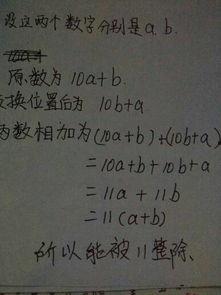 设这两个数字分别是a.b.
原数为10a+b.
换位置后为 10b+a
两数相加为(10a+b)+(10b+a)
=10a+b+10b+a
=11a+11b
=11(a+b)
所以能被11整除.